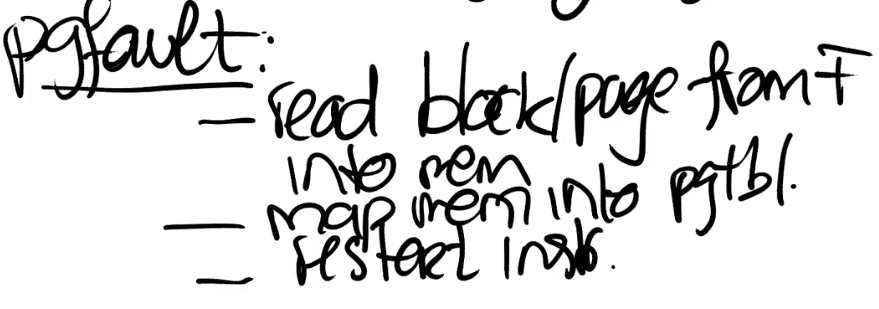 pgfault:
- read block/page from F
into mem
- map mem into pgtbl.
- restart instr.